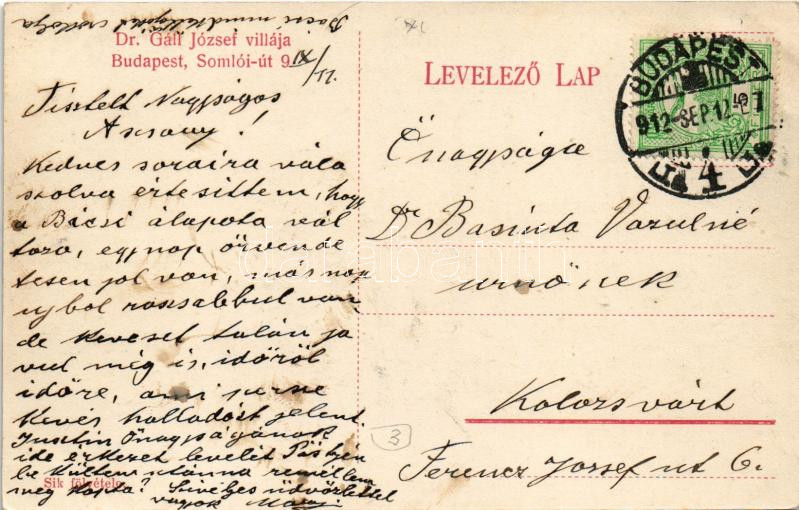 Bácsi mindnyájukat csókolja
Dr. Gáll József villája
Budapest, Somlói-út 9. IX/11.
Tisztelt Nagyságos
Asszony!
Kedves soraira vála
szolva értesittem, hogy
a Bácsi álapota vál
tozo, egy nap örvende
tesen jol van, másnap
ujbol rosszabbul van
de keveset talán ja
vul még is, időről
időre, ami persze
kevés halladást jelent.
Jusztin Önagyságának
ide érkezet levelét Pöstyén
be küldtem utánna remélem
meg kapta? Szivélyes üdvözlettel
vagyok
Sik fölvétele
LEVELEZŐ LAP
BUDAPEST
912 SEP 12
4
Őnagysága
Dr Basiota Vazulné
urnőnek
Kolozsvárt
Ferencz Jozsef ut 6.
3
darabanth